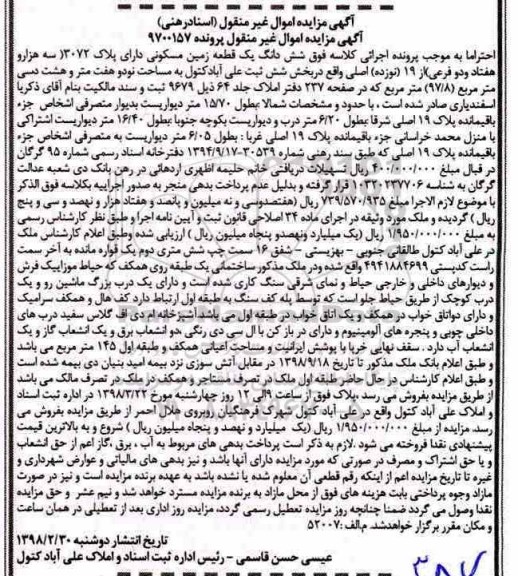 آگهی مزایده اموال غیر منقول (اسنادرهنی)
آگهی مزایده اموال غیر منقول پرونده ۹۷۰۰۱۵۷
احتراما به موجب پرونده اجرائی کلاسه فوق شش دانگ یک قطعه زمین مسکونی دارای پلاک ۳۰۷۲( سه هزارو
هفتاد ودو فرعی)از ۱۹ (نوزده) اصلی واقع دربخش شش ثبت علی آبادکتول به مساحت نودو هفت متر و هشت دسی
متر مربع (۹۷/۸) متر مربع که در صفحه ۲۳۷ دفتر املاک جلد ۶۴ ذیل ۹۶۷۹ ثبت و سند مالکیت بنام آقای ذکریا
اسفندیاری صادر شده است ، با حدود و مشخصات شمالا :بطول ۱۵/۷۰ متر دیواریست بدیوار متصرفی اشخاص جزء
باقیمانده پلاک ۱۹ اصلی شرقا :بطول ۶/۲۰ متر درب و دیواریست بکوچه جنوبا :بطول ۱۶/۴۰ متر دیواریست اشتراکی
با منزل محمد خراسانی جزء باقیمانده پلاک ۱۹ اصلی غربا : بطول ۶/۰۵ متر دیواریست به متصرفی اشخاص جزء
باقیمانده پلاک ۱۹ اصلی که طبق سند رهنی شماره ۳۰۵۳۹-۱۳۹۴/۹/۱۷ دفترخانه اسناد رسمی شماره ۹۵ گرگان
در قبال مبلغ ۴۰۰/۰۰۰/۰۰۰ ریال تسهیلات دریافتی خانم حلیمه اظهری اردهائی در رهن بانک دی شعبه عدالت
گرگان به شناسه ۱۰۳۲۰۲۳۷۷۰۶ قرار گرفته و بدلیل عدم پرداخت بدهی منجر به صدور اجراییه بکلاسه فوق الذکر
با موضوع لازم الاجرا مبلغ ۷۳۹/۵۷۰/۹۳۵ ریال (هفتصدوسی و نه میلیون و پانصد و هفتاد هزار و نهصد و سی و پنج
ریال ) گردیده و ملک مورد وثیقه در اجرای ماده ۳۴ اصلاحی قانون ثبت و آیین نامه اجرا و طبق نظر کارشناس رسمی
به مبلغ ۱/۹۵۰/۰۰۰/۰۰۰ ریال (یک میلیارد ونهصدو پنجاه میلیون ریال ) ارزیابی شده وطبق اعلام کارشناس ملک
در علی آباد کتول طالقانی جنوبی – بهزیستی – شفق ۱۶ سمت چپ شش متری دوم یک قواره مانده به آخر سمت
راست کدپستی ۴۹۴۱۸۸۴۶۹۹ واقع شده ودر ملک مذکور ساختمانی یک طبقه روی همکف که حیاط موزاییک فرش
و دیوارهای داخلی و خارجی حیاط و نمای شرقی سنگ کاری شده است و دارای یک درب بزرگ ماشین رو و یک
درب کوچک از طریق حیاط جلو است که توسط پله کف سنگ به طبقه اول ارتباط دارد کف هال و همکف سرامیک
و دارای دواتاق خواب در همکف و یک اتاق خواب در طبقه اول می باشد آشپزخانه ام دی اف گلاس سفید درب های
داخلی چوبی و پنجره های آلومینیوم و دارای در باز کن با ال سی دی رنگی ،دو انشعاب برق و یک انشعاب گاز و یک
انشعاب آب دارد . سقف نهایی خرپا با پوشش ایرانیت و مساحت اعیانی همکف و طبقه اول ۱۴۵ متر مربع می باشد
و طبق اعلام بانک ملک مذکور تا تاریخ ۱۳۹۸/۹/۱۸ در مقابل آتش سوزی نزد بیمه امید بنیان دی بیمه شده است
و طبق اعلام کارشناس درحال حاضر طبقه اول ملک در تصرف مستاجر و همکف در ملک در تصرف مالک می باشد
از طریق مزایده بفروش می رسد .پلاک فوق از ساعت ۹الی ۱۲ روز چهارشنبه مورخ ۱۳۹۸/۳/۲۲ در اداره ثبت اسناد
و املاک علی آباد کتول واقع در علی آباد کتول شهرک فرهنگیان روبروی هلال احمر از طریق مزایده بفروش می
رسد. مزایده از مبلغ ۱/۹۵۰/۰۰۰/۰۰۰ ریال (یک میلیارد و نهصد و پنجاه میلیون ریال ) شروع و به بالاترین قیمت
پیشنهادی نقدا فروخته می شود .لازم به ذکر است پرداخت بدهی های مربوط به آب ، برق ،گاز اعم از حق انشعاب
و یا حق اشتراک و مصرف در صورتی که مورد مزایده دارای آنها باشد و نیز بدهی های مالیاتی و عوارض شهرداری و
غیره تا تاریخ مزایده اعم از اینکه رقم قطعی آن معلوم شده یا نشده باشد به عهده برنده مزایده است و نیز در صورت
مازاد وجوه پرداختی بابت هزینه های فوق از محل مازاد به برنده مزایده مسترد خواهد شد و نیم عشر و حق مزایده
نقدا وصول می گردد ضمنا چنانچه روز مزایده تعطیل رسمی گردد، مزایده روز اداری بعد از تعطیلی در همان ساعت
و مکان مقرر برگزار خواهدشد. م.الف :۵۲۰۰۷
تاریخ انتشار دوشنبه ۱۳۹۸/۲/۳۰
عیسی حسن قاسمی – رئیس اداره ثبت اسناد و املاک علی آباد کتول